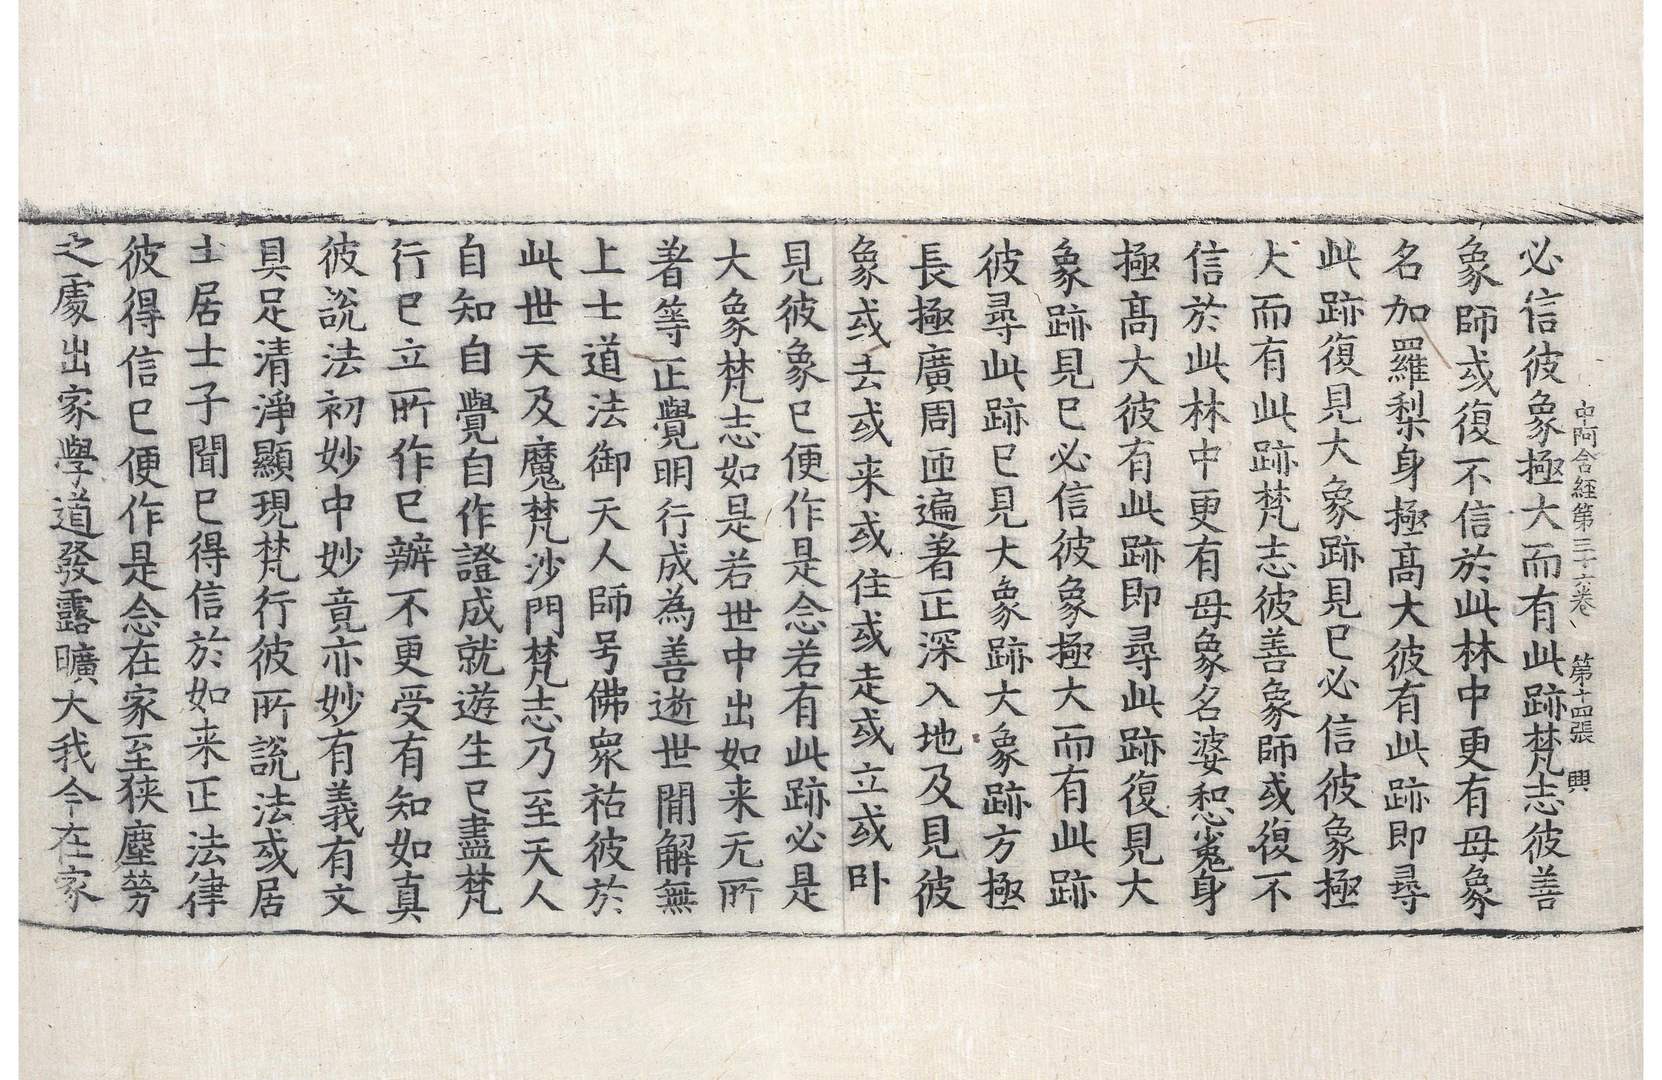 中阿含経第三十六巻 第十四張 興
必信彼象極大而有此跡梵志彼善
象師或復不信於此林中更有母象
名加羅梨身極髙大彼有此跡即尋
此跡復見大象跡見已必信彼象極
大而有此跡梵志彼善象師或復不
信於此林中更有母象名婆惒㝹身
極髙大彼有此跡即尋此跡復見大
象跡見已必信彼象極大而有此跡
彼尋此跡已見大象跡大象跡方極
長極廣周匝遍著正深入地及見彼
象或去或来或住或走或立或卧
見彼象已便作是念若有此跡必是
大象梵志如是若世中出如来无所
著等正覺明行成為善逝世間解無
上士道法御天人師号佛衆祐彼於
此世天及魔梵沙門梵志乃至天人
自知自覺自作證成就遊生已盡梵
行已立所作已辦不更受有知如真
彼說法初妙中妙竟亦妙有義有文
具足清淨顯現梵行彼所說法或居
士居士子聞已得信於如来正法律
彼得信已便作是念在家至狹塵勞
之處出家學道發露曠大我今在家